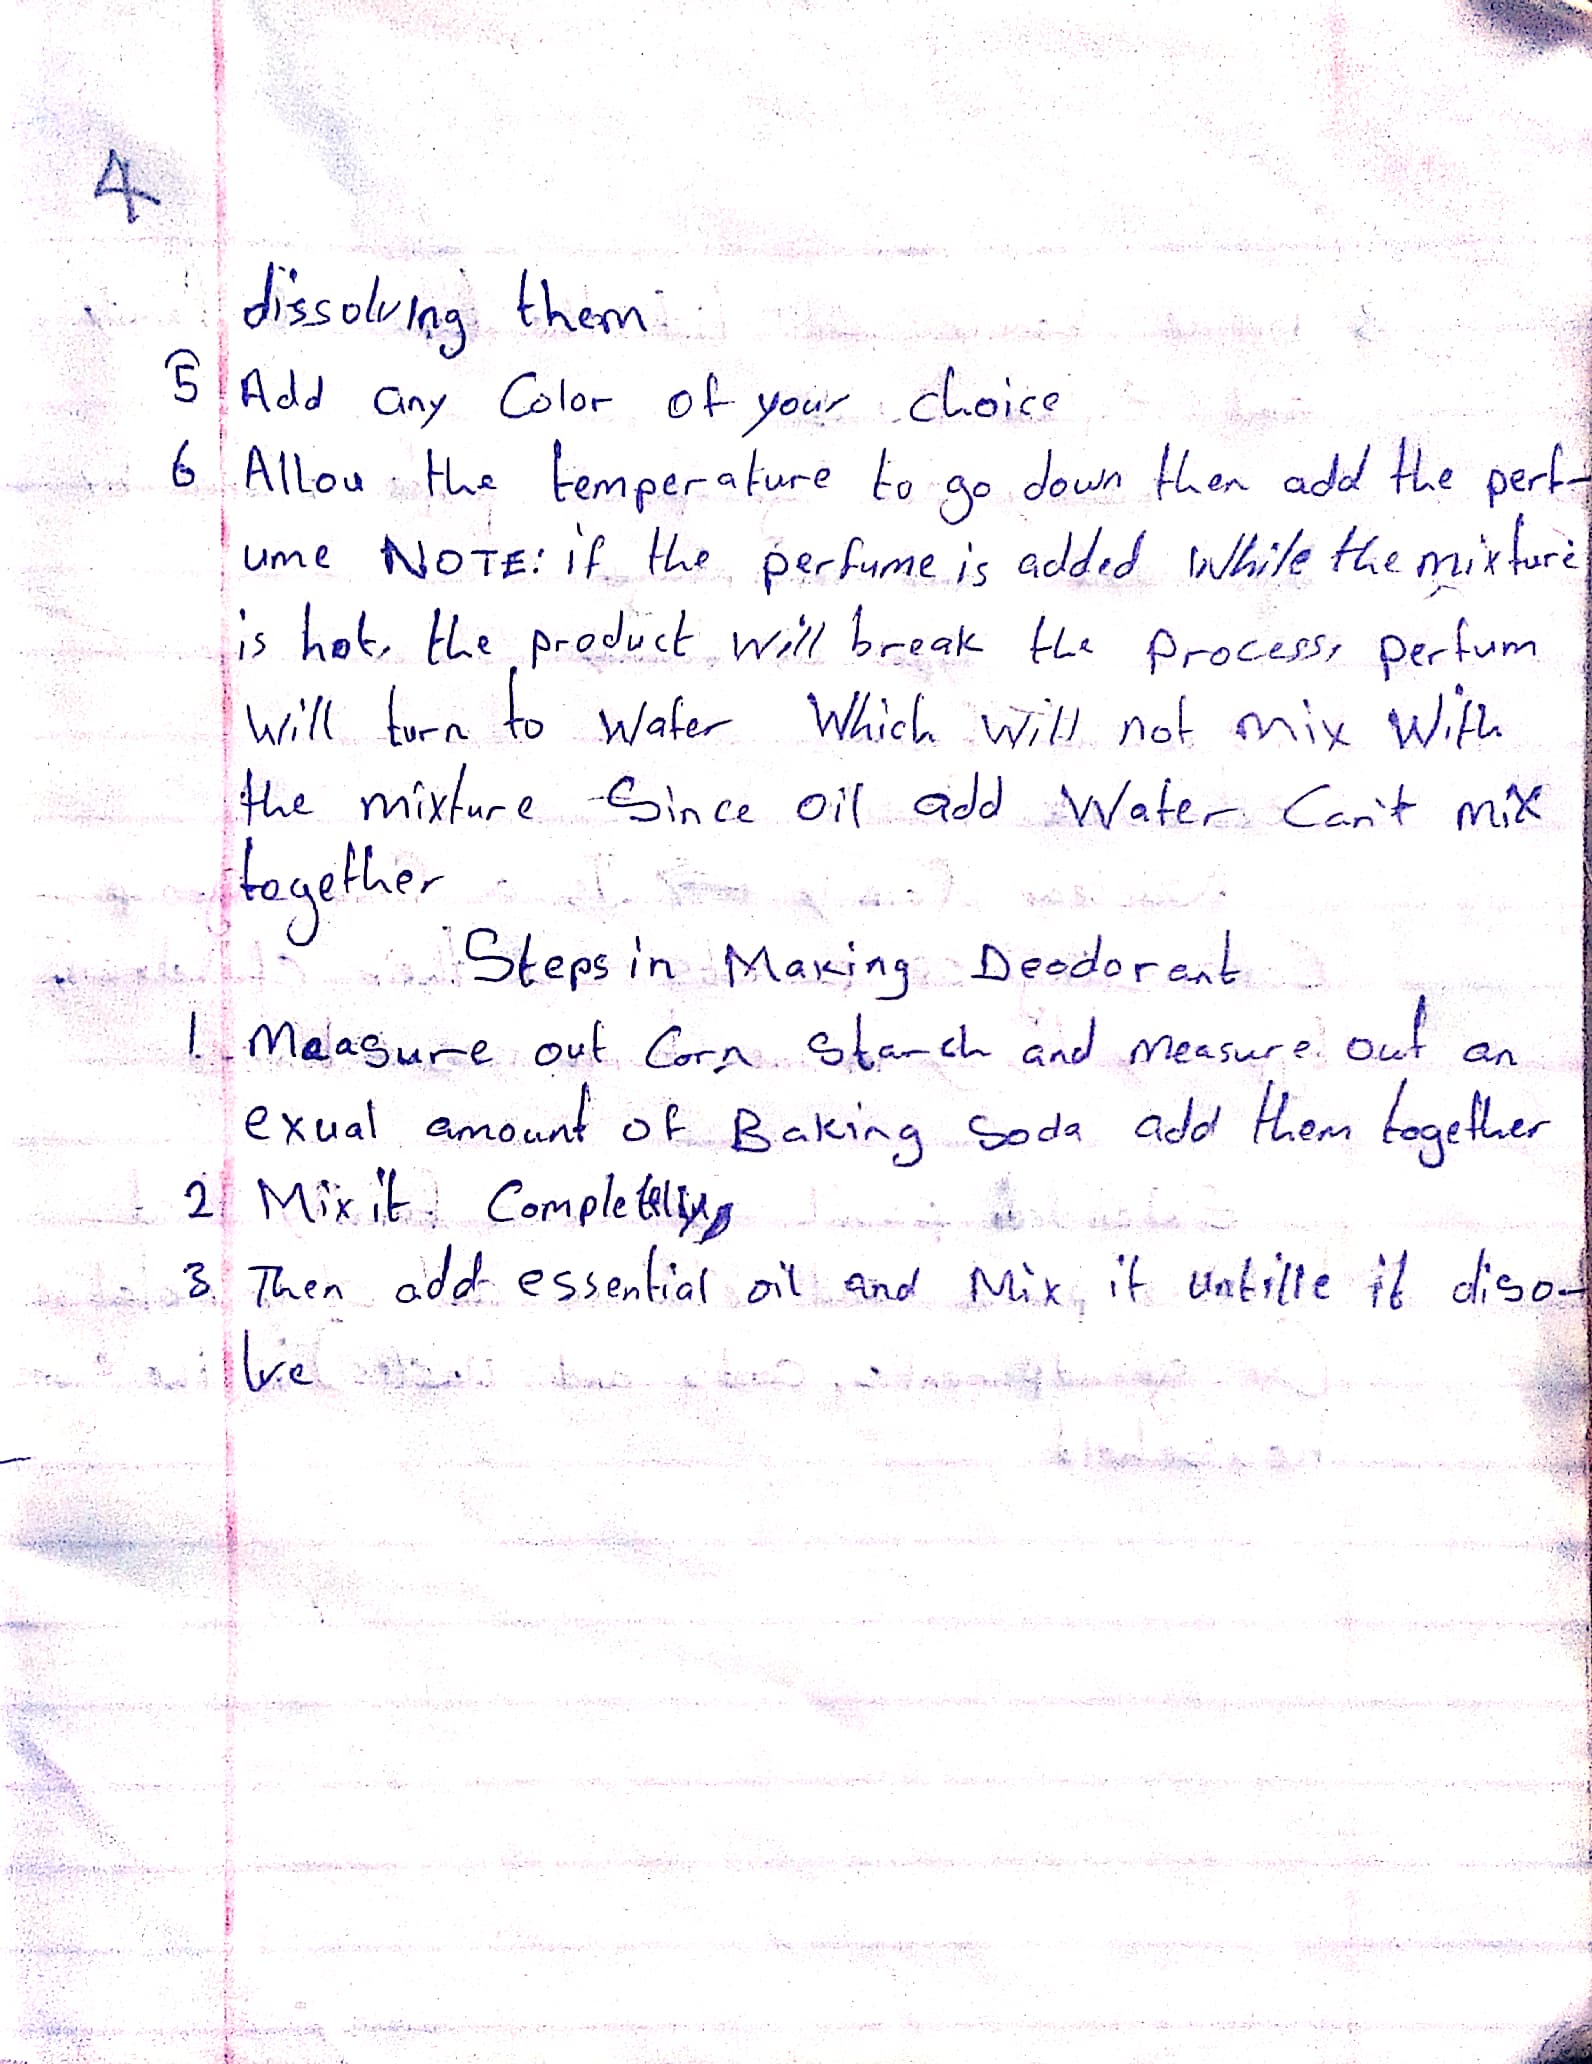 4
dissolving them
5 Add any Color of your choice
6 Allow the temperature to go down then add the perf-
ume NOTE: if the perfume is added While the mixture
is hot, the product will break the process, perfum
Will turn to Water Which Will not mix With
the mixture Since oil add Water Can't mix
together
Steps in Making Deodorant
1. Measure out Corn Starch and measure out an
exual amount of Baking Soda add them together
2 Mix it Completly,
3. Then add essential oil and Mix it untille it diso-
lve